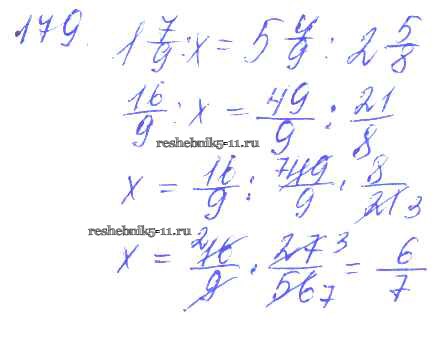 179. 1 7/9 : x = 5 4/9 : 2 5/8
16/9 : x = 49/9 : 21/8
reshebnik5-11.ru
x = 16/9 : 7 49/9 · 8/21 3
reshebnik5-11.ru
x = 2 16/9 · 27 3/56 7 = 6/7